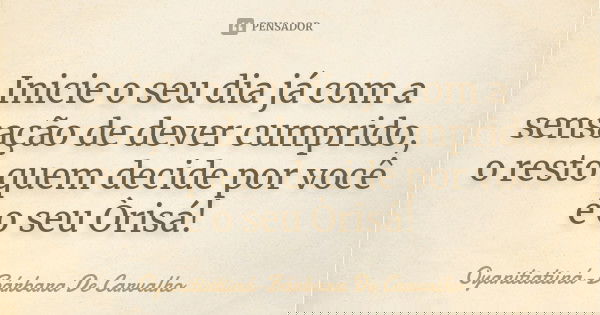 PENSADOR
Inicie o seu dia já com a
sensação de dever cumprido,
o resto quem decide por você
é o seu Òrisá!
Oyanifiatiuná
Bárbara De Carvalho